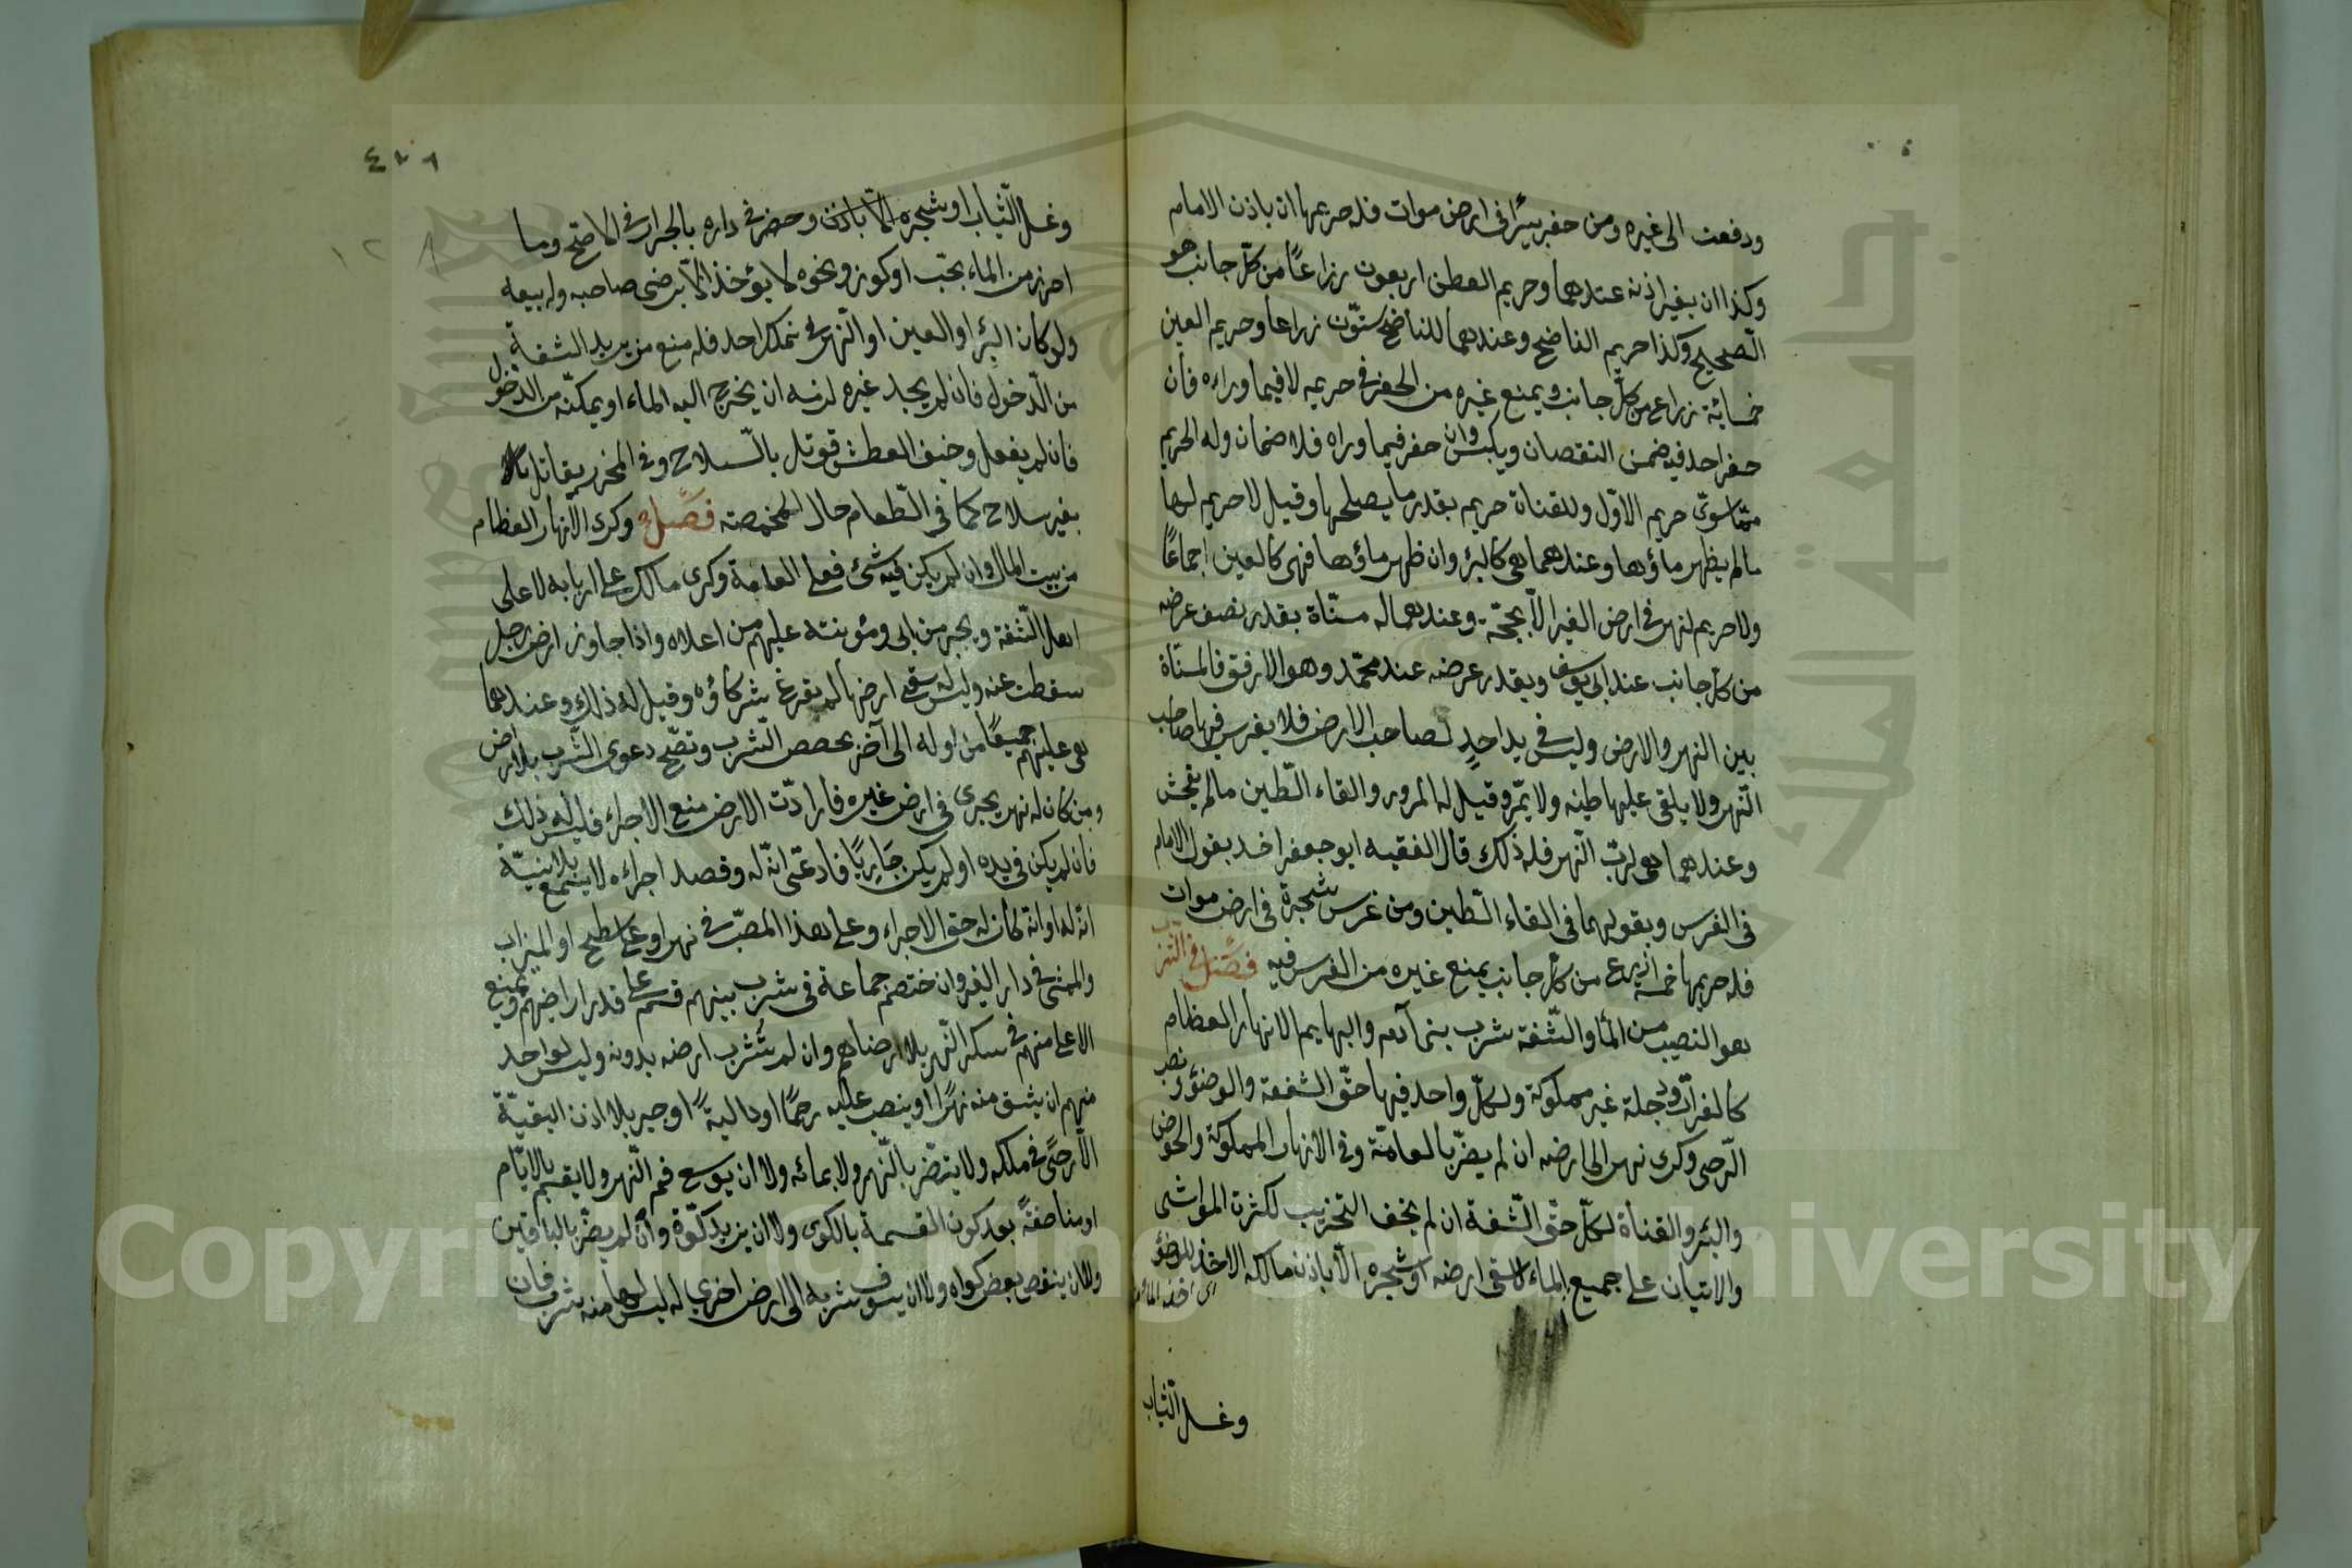 ودفعت الى غيره ومن حفر بئرا فى ارض موات فله حريمها ان باذن الامام
وكذا ان بغير اذنه عندهما وحريم العطن اربعون زراعًا من كلّ جانب هو
الصّحيح وكذا حريم الناضح وعندهما للناضح ستّون زراعا وحريم العين
خمسمائة زراع من كلّ جانب ويمنع غيره من الحفر فى حريمه لا فيما وراءه فأن
حفر احد فيه ضمن النقصان ويكبس وان حفر فيما وراه فلا ضمان وله الحريم
ممّا سوى حريم الاوّل وللقناة حريم بقدر ما يصلحها وقيل لا حريم لها
مالم يظهر ماؤها وعندهما هى كالبئر وان ظهر ماؤها فهى كالعين اجماعًا
ولا حريم لنهر فى ارض الغير الّا بحجّة وعندهما له مسنّاة بقدر نصف عرضه
من كلّ جانب عند ابى يوسف وبقدر عرضه عند محمّد وهو الارفق فالمسنّاة
بين النهر والارض وليس فى يد احدٍ لصاحب الارض فلا يغرس فيها صاحب
النّهر ولا يلقى عليها طينه ولا يمّر وقيل له المرور والقاء الطّين مالم يفحش
وعندهما هى لربّ النّهر فله ذلك قال الفقيه ابو جعفر اخذ بقول الامام
فى الغرس وبقولهما فى القاء الطّين ومن غرس شجرة فى ارض موات
فله حريمها خمسة ازرع من كلّ جانب يمنع غيره من الغرس فيه فصل فى الشرب
هو النصيب من الماء والشّفة شرب بنى آدم والبهايم الانهار العظام
كالفرات ودجلة غير مملوكة ولكلّ واحد فيها حقّ الشفعة والوضؤ ونصب
الرّحى وكرى نهر الى ارضه ان لم يضرّ بالعامّة وفى الانهار المملوكة والحوض
والبئر والقناة لكلّ حقّ الشّفة ان لم يخف التخريب لكثرت المواشى
والاتيان على جميع الماء لا سقى ارضه او شجره الّا باذن مالكه الاخذ للوضؤ
وغسل الثّياب
٤٢٦
وغسل الثّياب او شجره الّا باذن وحضر فى داره بالجرار فى الاصحّ وما
احرز من الماء بحبّ او كوز ونحوه لا يؤخذ الّا برضى صاحبه وله بيعه
ولو كان البئر او العين او النّهر فى ملك احد فله منع من يريد الشفة
من الدّخول فان لم يجد غيره لزمه ان يخرج اليه الماء او يمكنّه من الدخول
فان لم يفعل وخيف العطش قوتل بالسّلاح وفى المحرز يقاتل
بغير سلاح كما فى الطّعام حال المخمصة فصل وكرى الانهار العظام
من بيت المال وان لم يكن فيه شئ فعلى العامة وكرى ما ملك على اربابه لا على
اهل الشّفة ويجبر من ابى ومؤنته عليهم من اعلاه واذا جاوز ارض رجل
سقطت عنه وليس له سقى ارضها لم يفرغ شركاؤه وقيل له ذلك وعندهما
هى عليهم جميعًا من اوله الى آخر بحصص الشّرب وتصّح دعوى الشّرب بلا ارض
ومن كان له نهر يجرى فى ارض غيره فارادت الارض منع الاجراء فليس له ذلك
فان لم يكن فى يده او لم يكن جَارِيًا فادعّى انّه له وقصد اجراءه لا يسمع بلا بنيّة
انّه له او انّه كان له حق الاجراء وعلى هذا المصّب فى نهر او على سطح او الميزاب
والممشى فى دار الغير وان ختصم جماعة فى شرب بينهم قسم على قدر اراضيهم ويمنع
الاعلى منهم فى سكر النّهر بلا رضاهم وان لم تشرب ارضه بدونه وليس لواحد
منهم ان يشق منه نهرًا او ينصب عليه رحًا او دالية او جسر بلا اذن البقيّة
الّا رحًى فى ملكه ولا يتضّر بالنّهر ولا بمائه ولا ان يوسع فم النّهر ولا يقسم بالايّام
او مناصفةً بعد كون القسمة بالكوى ولا ان يزيد كوّة وان لم يضّر بالباقين
ولا ان ينقص بعض كواه ولا ان يسوق شربه الى ارض اخرى له ليس لها منه شرب فان
Copyright © King Saud University